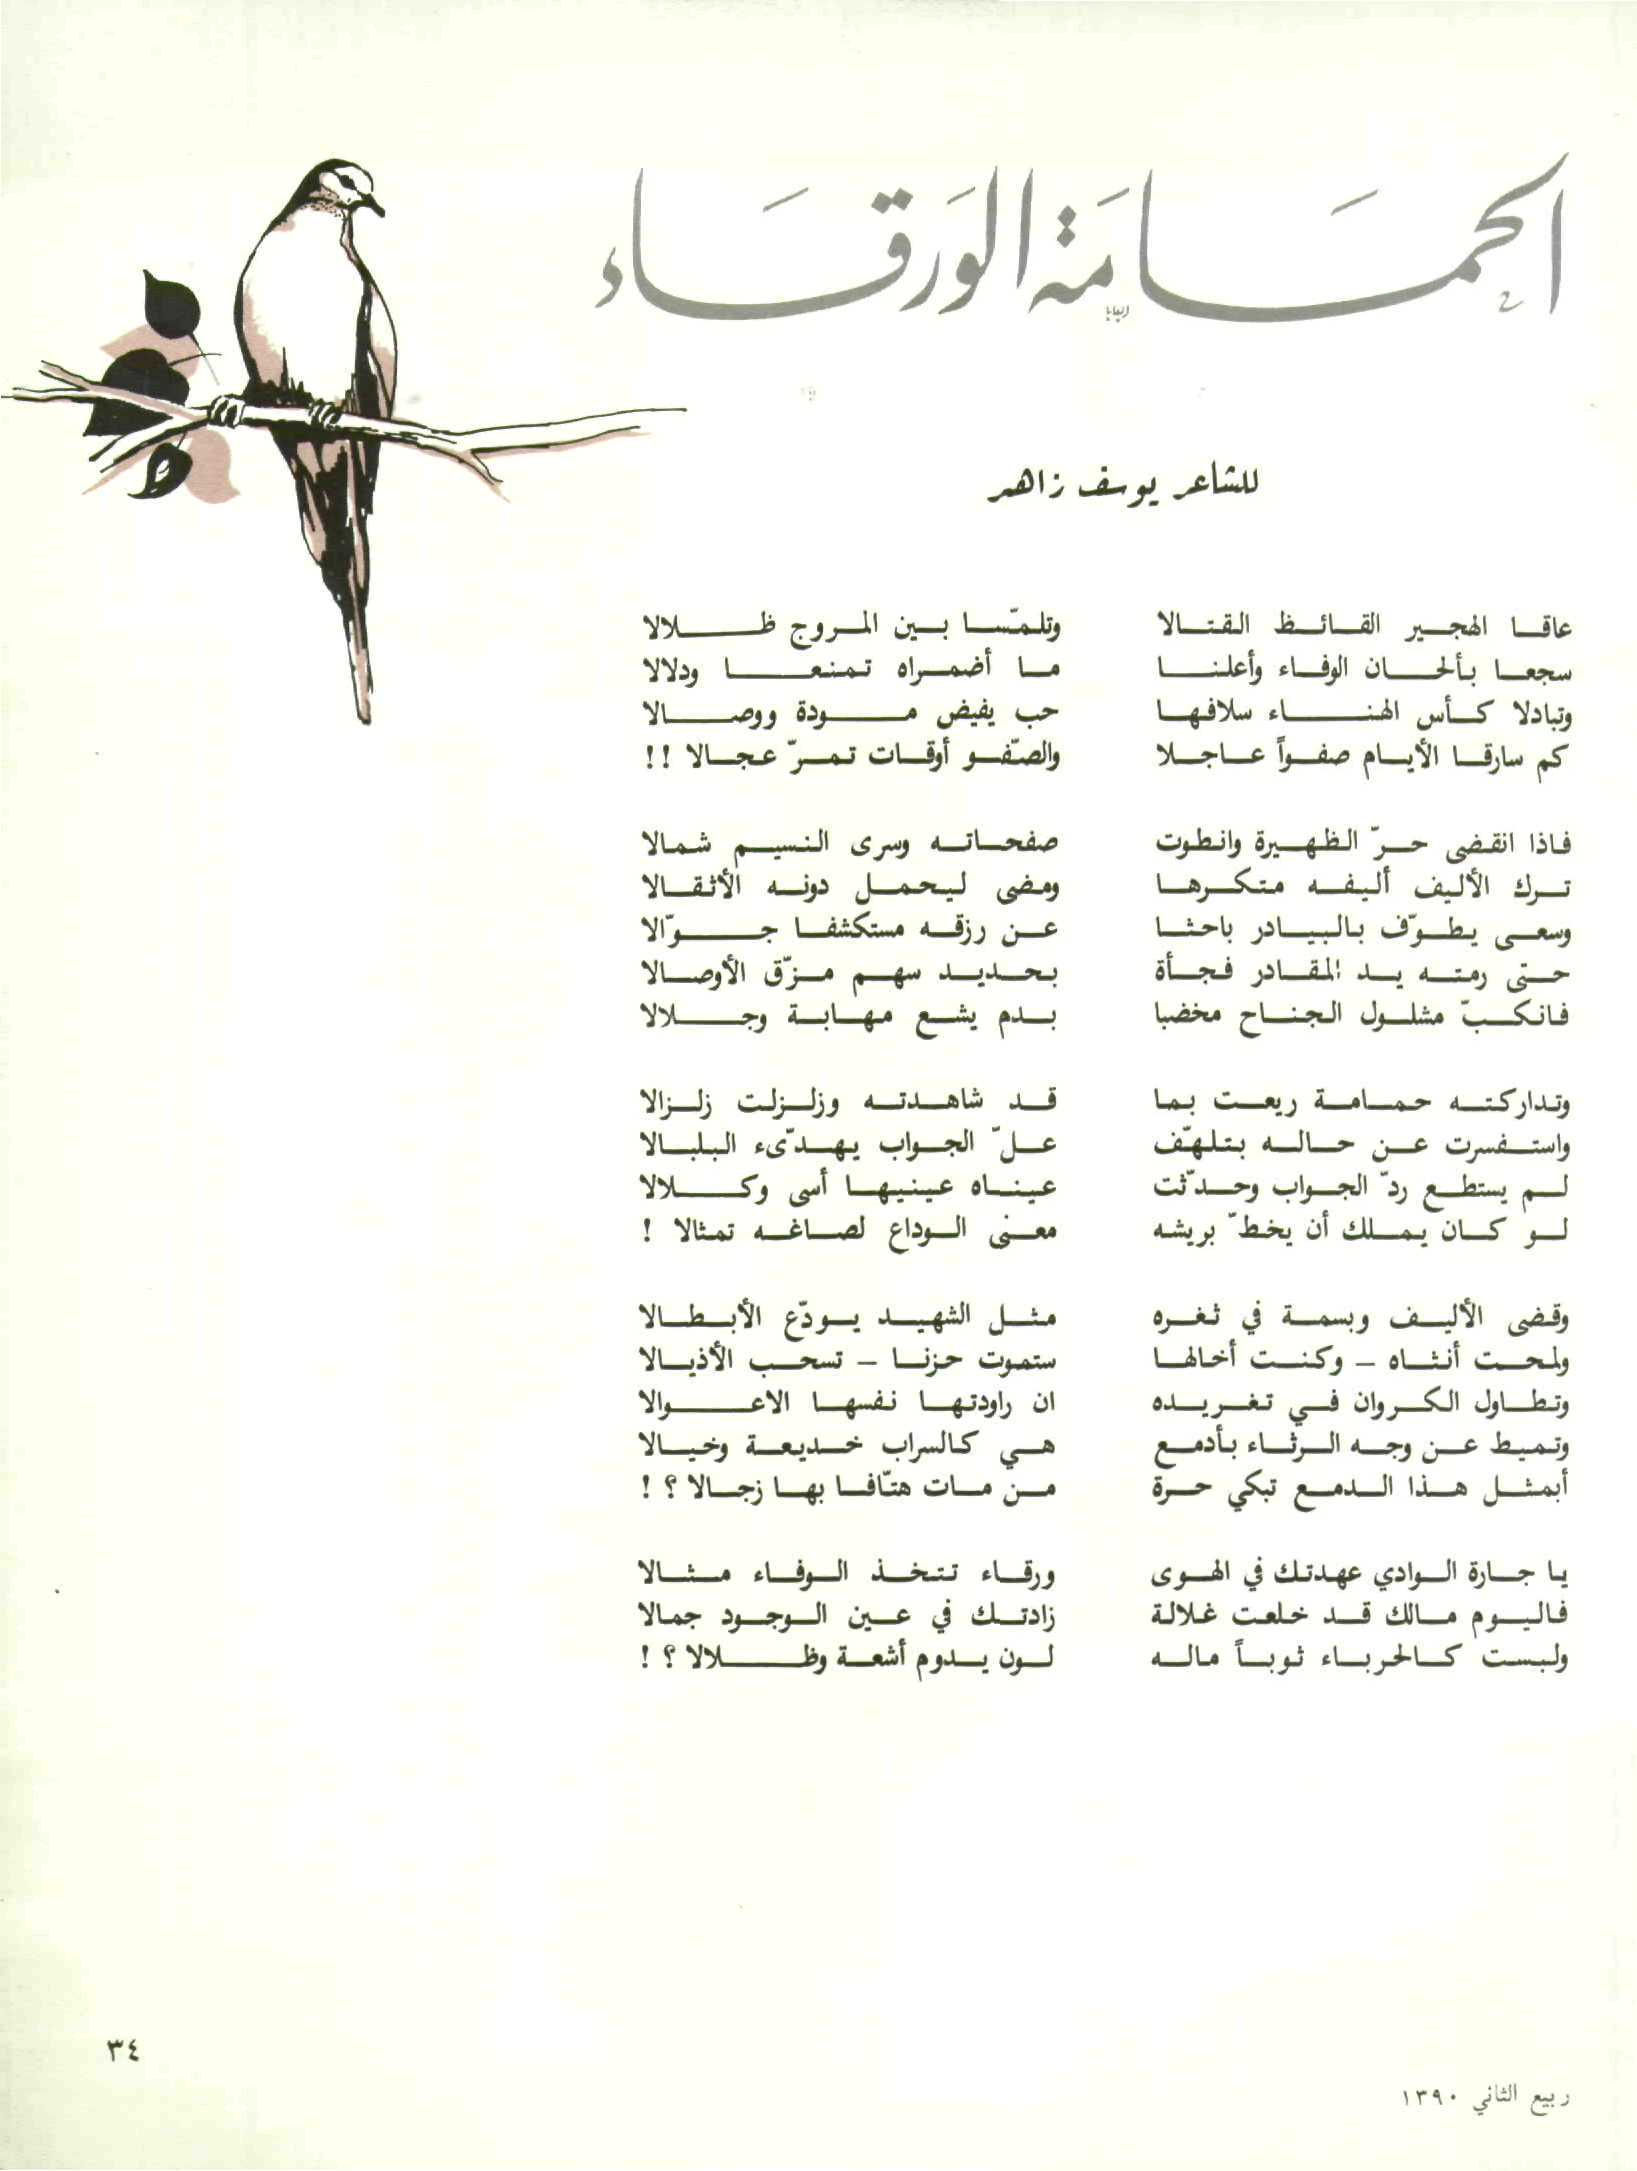 الحمامة الورقاء
للشاعر يوسف زاهر
عاقا الهجير القائظ القتالا وتلمّسا بين المروج ظلالا
سجعا بألحان الوفاء وأعلنا ما أضمراه تمنعا ودلالا
وتبادلا كأس الهناء سلافها حب يفيض مودة ووصالا
كم سارقا الأيام صفواً عاجلا والصّفو أوقات تمرّ عجالا !!
فاذا انقضى حرّ الظهيرة وانطوت صفحاته وسرى النسيم شمالا
ترك الأليف أليفه متكرها ومضى ليحمل دونه الأثقالا
وسعى يطوّف بالبيادر باحثا عن رزقه مستكشفا جوّالا
حتى رمته يد المقادر فجأة بحديد سهم مزّق الأوصالا
فانكبّ مشلول الجناح مخضبا بدم يشع مهابة وجلالا
وتداركته حمامة ريعت بما قد شاهدته وزلزلت زلزالا
واستفسرت عن حاله بتلهّف علّ الجواب يهدّىء البلبالا
لم يستطع ردّ الجواب وحدّثت عيناه عينيها أسى وكلالا
لو كان يملك أن يخطّ بريشه معنى الوداع لصاغه تمثالا !
وقضى الأليف وبسمة في ثغره مثل الشهيد يودّع الأبطالا
ولمحت أنثاه – وكنت أخالها ستموت حزنا – تسحب الأذيالا
وتطاول الكروان في تغريده ان راودتها نفسها الاعوالا
وتميط عن وجه الرثاء بأدمع هي كالسراب خديعة وخيالا
أبمثل هذا الدمع تبكي حرة من مات هتّافا بها زجالا ؟ !
يا جارة الوادي عهدتك في الهوى ورقاء تتخذ الوفاء مثالا
فاليوم مالك قد خلعت غلالة زادتك في عين الوجود جمالا
ولبست كالحرباء ثوباً ماله لون يدوم أشعة وظلالا ؟ !
٣٤
ربيع الثاني ١٣٩٠